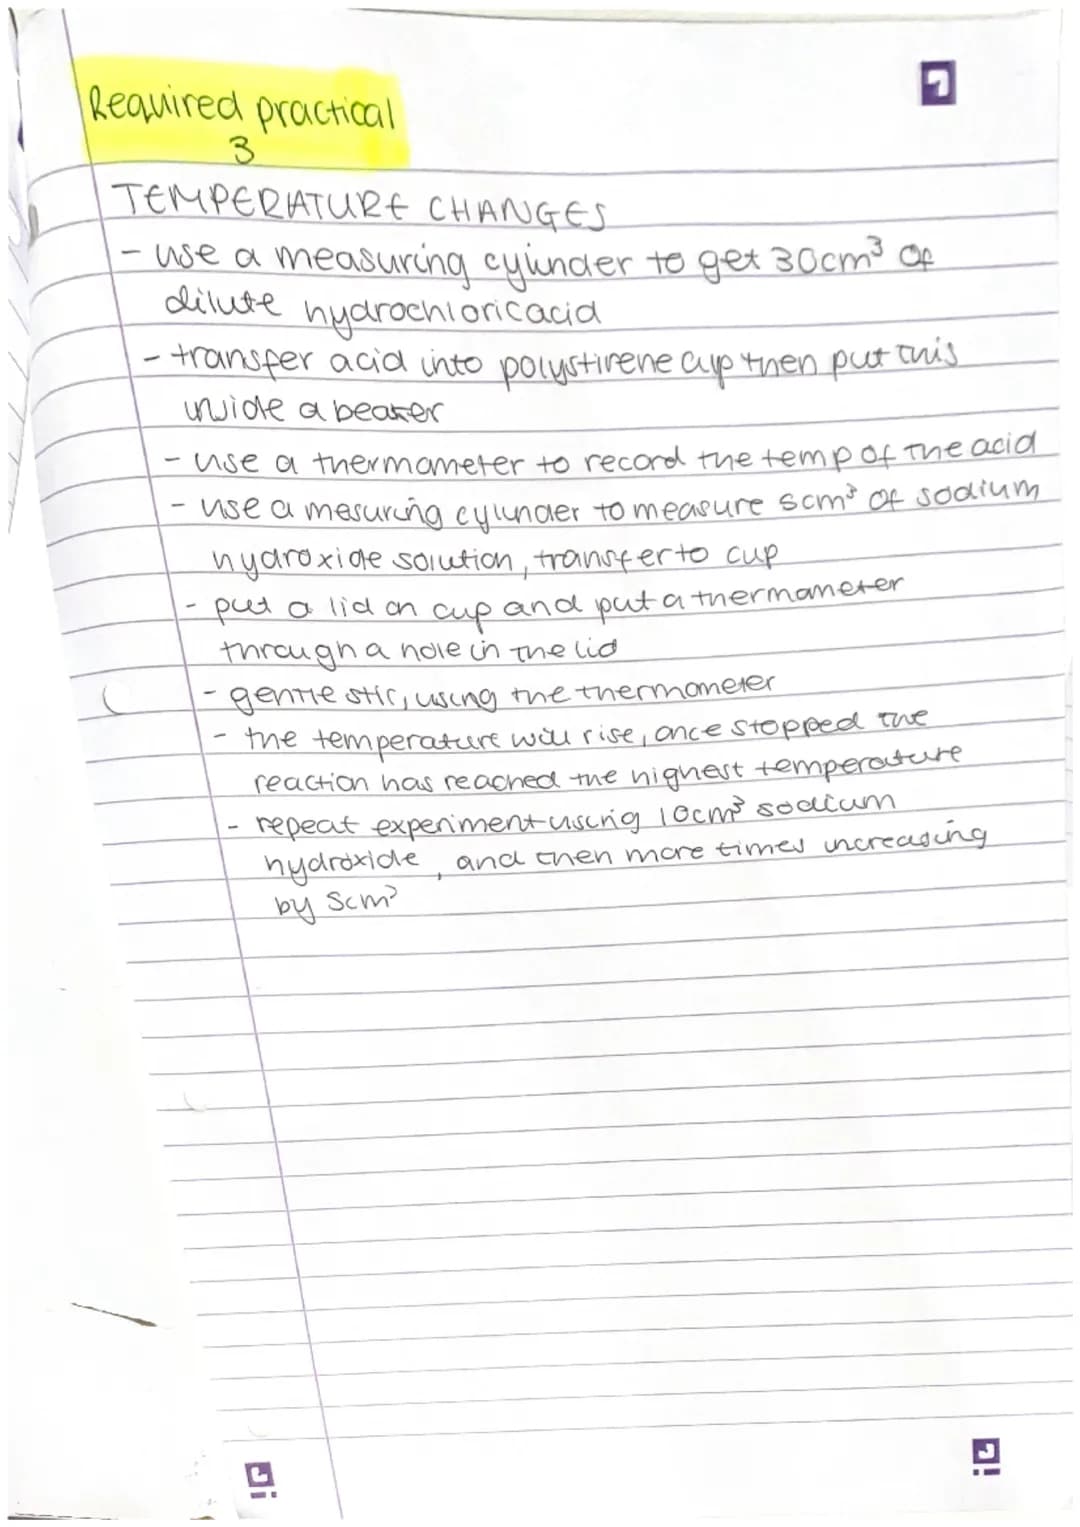 Required practical
3
TEMPERATURE CHANGES
- use a measuring cylinder to get 30cm³ of
dilute hydrochloric acid
- transfer acid into polystirene cup then put this
inside a beaker
- use a thermometer to record the temp of the acid
- use a mesuring cylinder to measure 5cm³ of sodium
hydroxide solution, transfer to cup
- put a lid on cup and put a thermometer
through a hole in the lid
- gentle stir, using the thermometer
- the temperature will rise, once stopped the
reaction has reached the highest temperature
- repeat experiment using 10cm³ sodium
hydroxide, and then more times increasing
by 5cm³